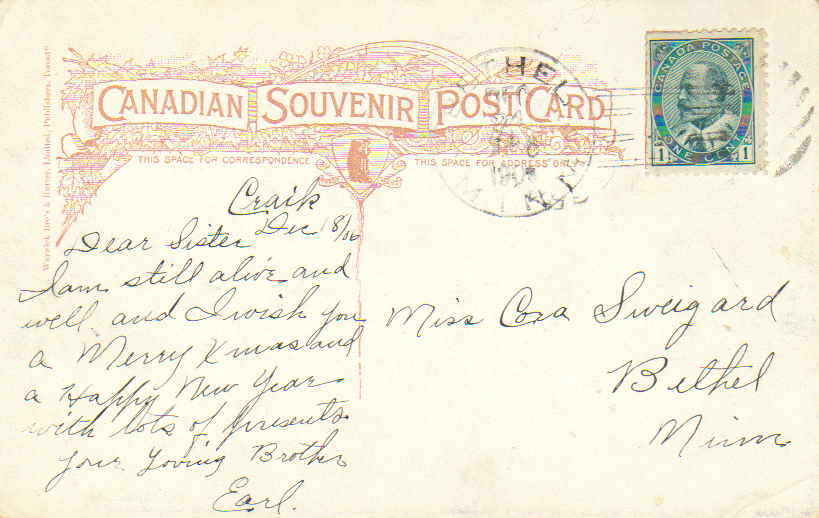 CANADIAN SOUVENIR POST CARD
THIS SPACE FOR CORRESPONDENCE
THIS SPACE FOR ADDRESS ONLY
Warwick Bro's & Rutter, Limited, Publishers, Toronto
CANADA POSTAGE
1 ONE CENT 1
BETHEL
DEC
MINN
Craik
Dec 18/06
Dear Sister
I am still alive and
well and I wish you
a Merry Xmas and
a Happy New Year
with lots of presents
Your Loving Brother
Earl.
Miss Cora Sweigard
Bethel
Minn